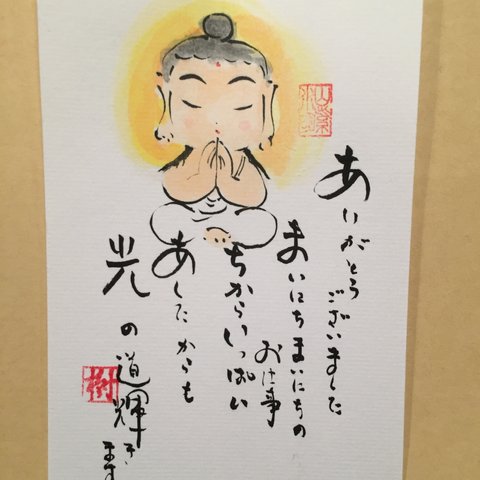 ありがとう
ございました
まいにちまいにちの
お仕事
ちからいっぱい
あしたからも
光の道輝き
ます
樹